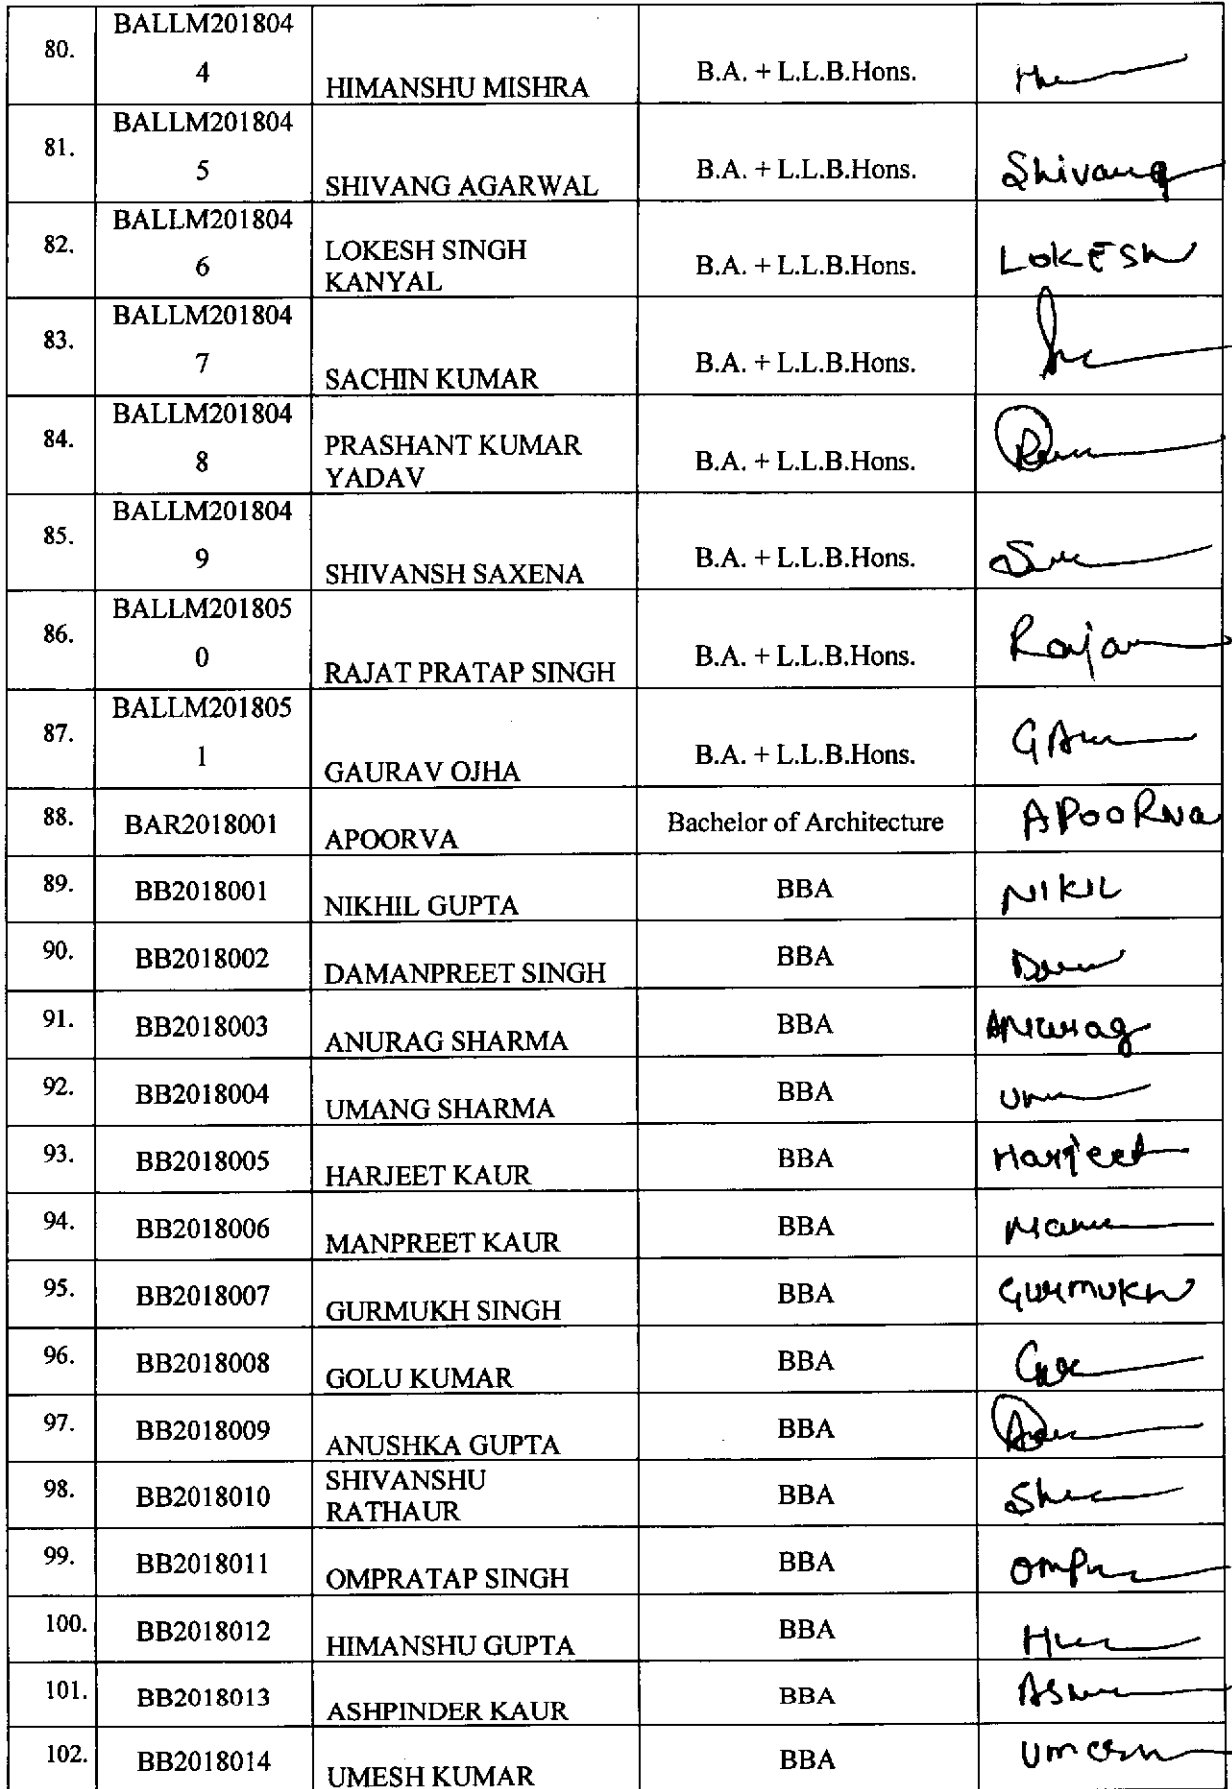 80. BALLM201804
4 HIMANSHU MISHRA B.A. + L.L.B.Hons.
81. BALLM201804
5 SHIVANG AGARWAL B.A. + L.L.B.Hons. Shivang
82. BALLM201804
6 LOKESH SINGH
KANYAL B.A. + L.L.B.Hons. LOKESH
83. BALLM201804
7 SACHIN KUMAR B.A. + L.L.B.Hons.
84. BALLM201804
8 PRASHANT KUMAR
YADAV B.A. + L.L.B.Hons.
85. BALLM201804
9 SHIVANSH SAXENA B.A. + L.L.B.Hons.
86. BALLM201805
0 RAJAT PRATAP SINGH B.A. + L.L.B.Hons.
87. BALLM201805
1 GAURAV OJHA B.A. + L.L.B.Hons.
88. BAR2018001 APOORVA Bachelor of Architecture APOORVA
89. BB2018001 NIKHIL GUPTA BBA NIKIL
90. BB2018002 DAMANPREET SINGH BBA
91. BB2018003 ANURAG SHARMA BBA Anurag
92. BB2018004 UMANG SHARMA BBA
93. BB2018005 HARJEET KAUR BBA Harjeet
94. BB2018006 MANPREET KAUR BBA
95. BB2018007 GURMUKH SINGH BBA GURMUKH
96. BB2018008 GOLU KUMAR BBA
97. BB2018009 ANUSHKA GUPTA BBA
98. BB2018010 SHIVANSHU
RATHAUR BBA
99. BB2018011 OMPRATAP SINGH BBA
100. BB2018012 HIMANSHU GUPTA BBA
101. BB2018013 ASHPINDER KAUR BBA
102. BB2018014 UMESH KUMAR BBA Umesh